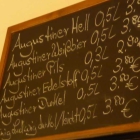 Augustiner Hell 0,5L
Augustiner Weißbier 0,5L 3.
Augustiner Pils 0,5L 3.80
Augustiner Edelstoff 0,5L 3.80
Augustiner Dunkel 0,5L 3.80€
dunkel 0,5L 3.80